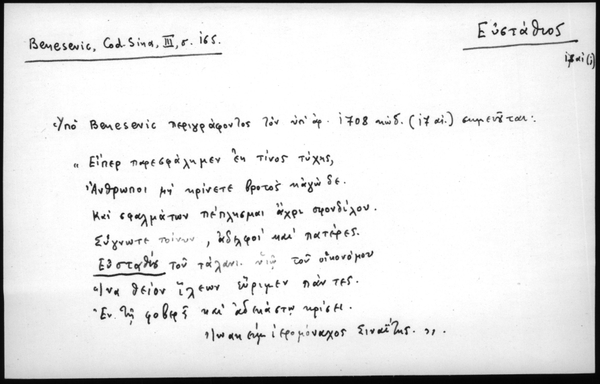 Benesevic, Cod. Sina, III, σ. 165.
Εὐστάθιος
αἰ (;)
Ὑπὸ Benesevic περιγράφοντος τὸν ὑπ' ἀρ. 1708 κώδ. (17 αἰ.) σημειοῦται:
"Εἴπερ παρεσφάλημεν ἔκ τινος τύχης,
Ἄνθρωποι μὴ κρίνετε βροτὸς κἀγὼ δε.
Καὶ σφαλμάτων πέπλησμαι ἄχρι σπονδύλου.
Σύγνωτε τοίνυν, ἀδελφοὶ καὶ πατέρες.
Εὐσταθίῳ τοῦ τάλανι υἱῷ τοῦ οἰκονόμου
Ἵνα θεῖον ἵλεων εὕριμεν πάντες.
Ἐν τῇ φοβερᾷ καὶ ἀδεκάστῳ κρίσει.
ἱερομόναχος Σιναΐτης.